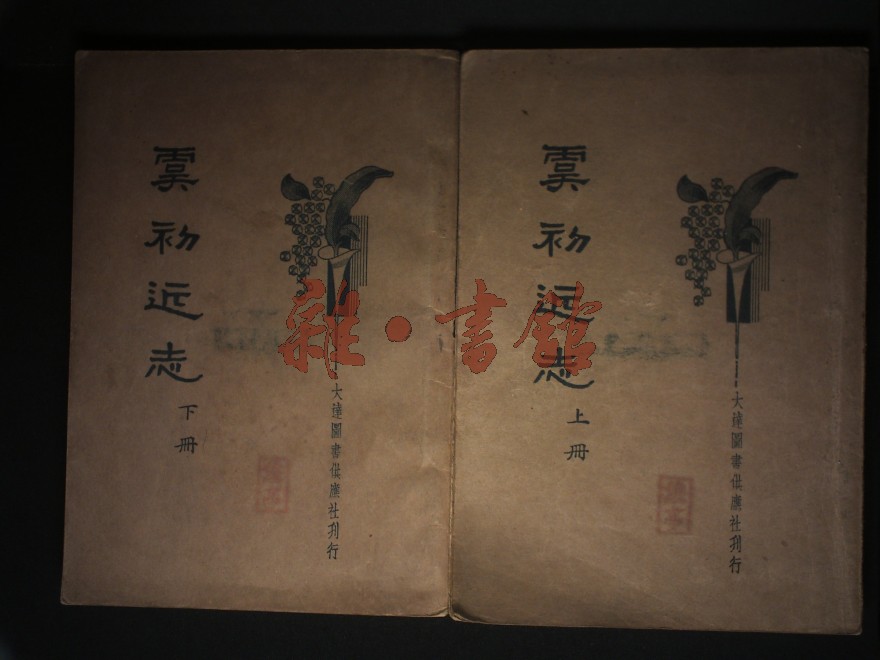 虞初近志
上冊
大達圖書供應社刋行
虞初近志
下冊
大達圖書供應社刋行
雜·書館